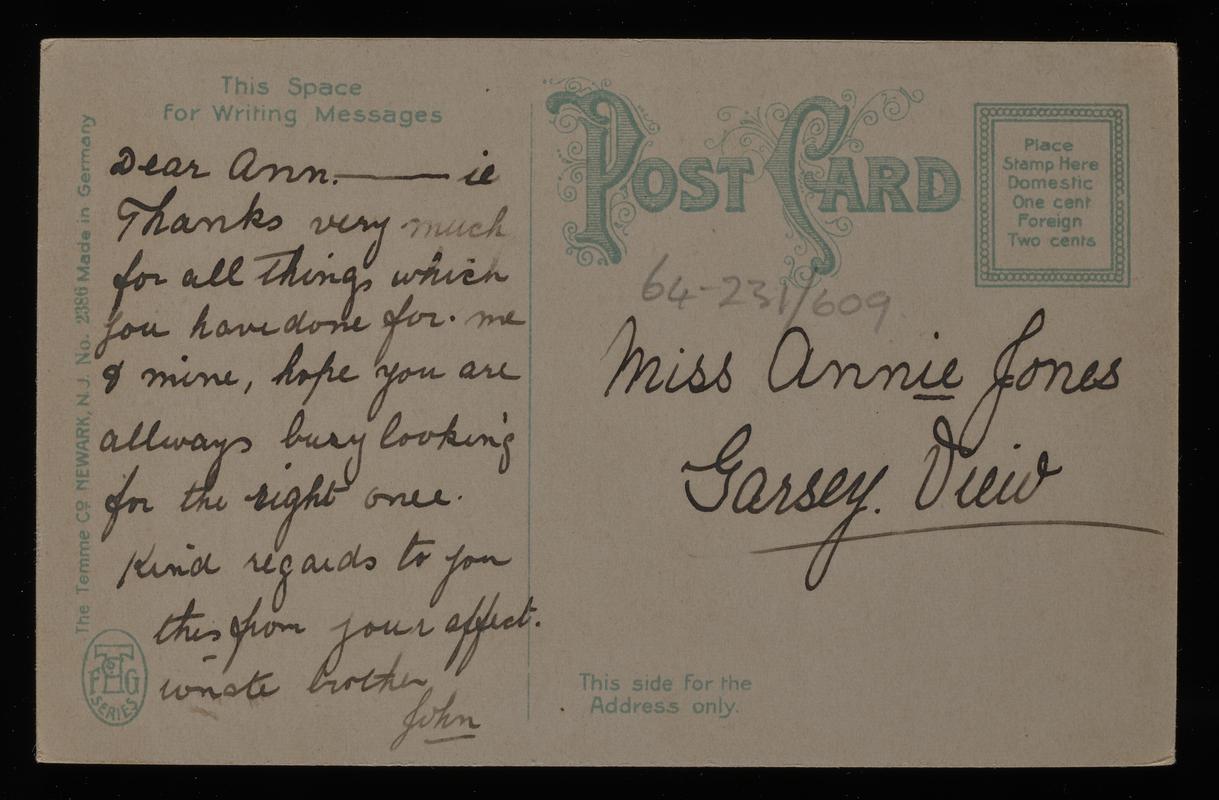 This Space
For Writing Messages
Dear Ann.——ie
Thanks very much
for all things which
you have done for. me
& mine, hope you are
allways busy looking
for the right onee.
Kind regards to you
this from your affect.
brother
John
The Temme Co NEWARK, N.J. No. 2386 Made in Germany
SERIES
POST CARD
Place
Stamp Here
Domestic
One cent
Foreign
Two cents
64-231/609
Miss Annie Jones
Garsey. View
This side For the
Address only.